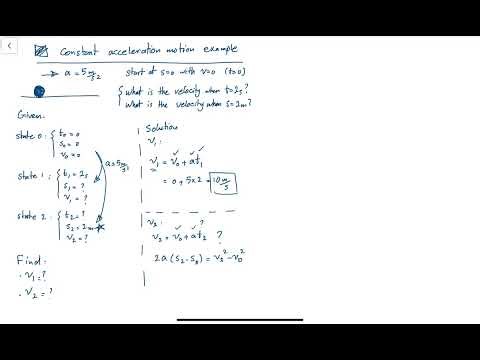 Constant acceleration motion example
→ a = 5 m/s² start at s=0 with v=0 (t=0)
what is the velocity when t=2s?
what is the velocity when s=2m?
Given:
state 0: t₀ = 0
s₀ = 0
v₀ = 0
a=5 m/s²
state 1: t₁ = 2s
s₁ = ?
v₁ = ?
state 2: t₂ = ?
s₂ = 2m
v₂ = ?
Find:
· v₁ = ?
· v₂ = ?
Solution
v₁:
v₁ = v₀ + at₁
= 0 + 5×2 = 10 m/s
v₂:
?
v₂ = v₀ + at₂ ?
2a (s₂ - s₀) = v₂² - v₀²